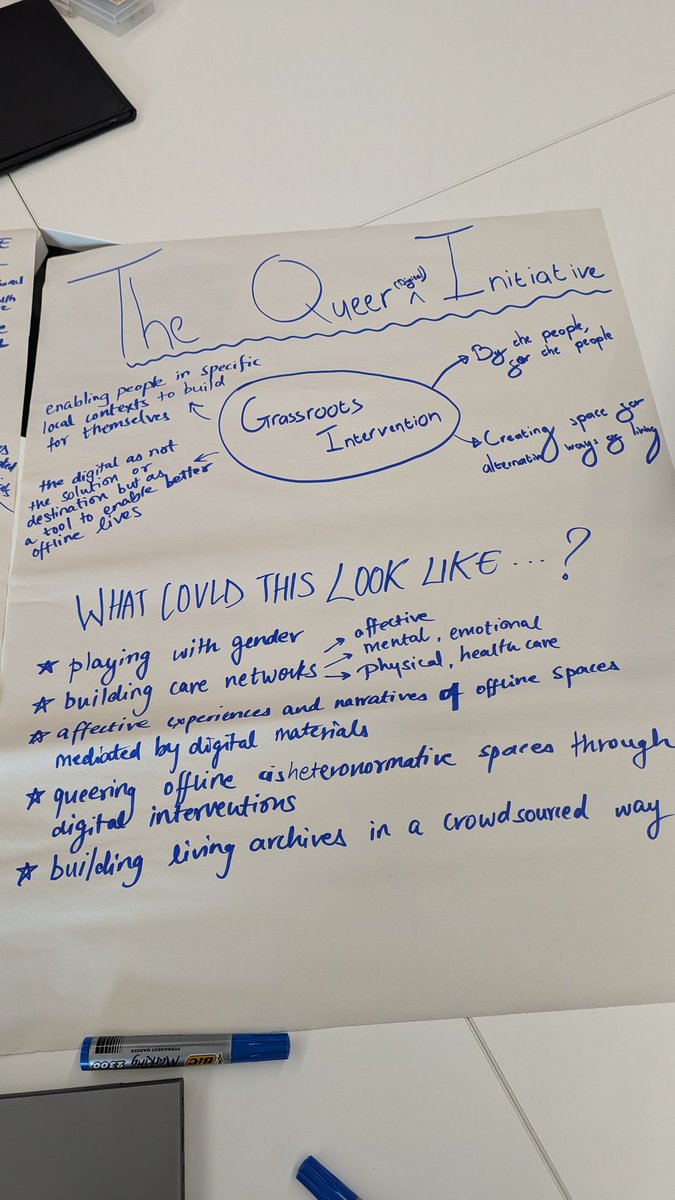 The Queer (Digital) ^ Initiative
enabling people in specific
local contexts to build
for themselves
Grassroots
Intervention
By the people,
for the people
Creating space for
alternative ways of living
the digital as not
the solution or
destination but as
a tool to enable better
offline lives
WHAT COULD THIS LOOK LIKE ...?
☆ playing with gender
☆ building care networks
→ affective
→ mental, emotional
→ physical, health care
☆ affective experiences and narratives of offline spaces
mediated by digital materials
☆ queering offline cisheteronormative spaces through
digital interventions
☆ building living archives in a crowdsourced way
BIC
Marking
2300
PERMANENT MARKER